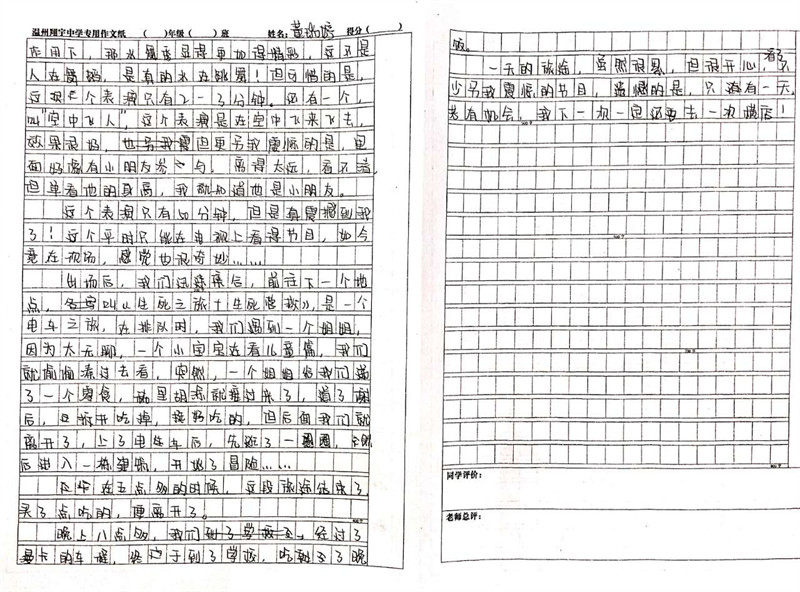 温州翔宇中学专用作文纸 （ ）年级（ ）班 姓名： 得分（ ）
作用下，那水显得更加得情形，这不是
人在舞蹈，是真的水在跳舞！但可惜的是，
这个表演只有2-3分钟。还有一个，
叫"空中飞人"，这个表演是在空中飞来飞去，
效果很好，也令我震但更令我震惊的是，里
面好像有小朋友参与。离得太远，看不清，
但单看他的身高，我就知道他是小朋友。
这个表演只有10分钟，但是真震撼到我
了！这个平时只能在电视上看得节目，如今
竟在现场，感觉也很奇妙……
出场后，我们后，前往下一个地
点，名叫《生死之旅十生死营救》，是一个
电车之旅，在排队时，我们遇到一个姐姐，
因为太无聊，一个小宝宝在看儿童篇，我们
就偷偷凑过去看，突然，一个姐姐给我们递
了一个零食，就过来了，道了谢
后，拆开吃掉，挺好吃的，但后面我们就
离开了，上了电车车后，先逛了一圈，然
后进入一栋建筑，开始了冒险……
在五点多的时候，这段旅途结束了，
买了点吃的，便离开了。
晚上八点多，我们到了学校，经过了
的车程，终于到了学校，吃了晚
饭。
一天的旅途，虽然很累，但很开心，看了不
少令我震惊的节目，遗憾的是，只有一天，
若有机会，我下一次一定还要去一次横店！
同学评价：
老师总评：